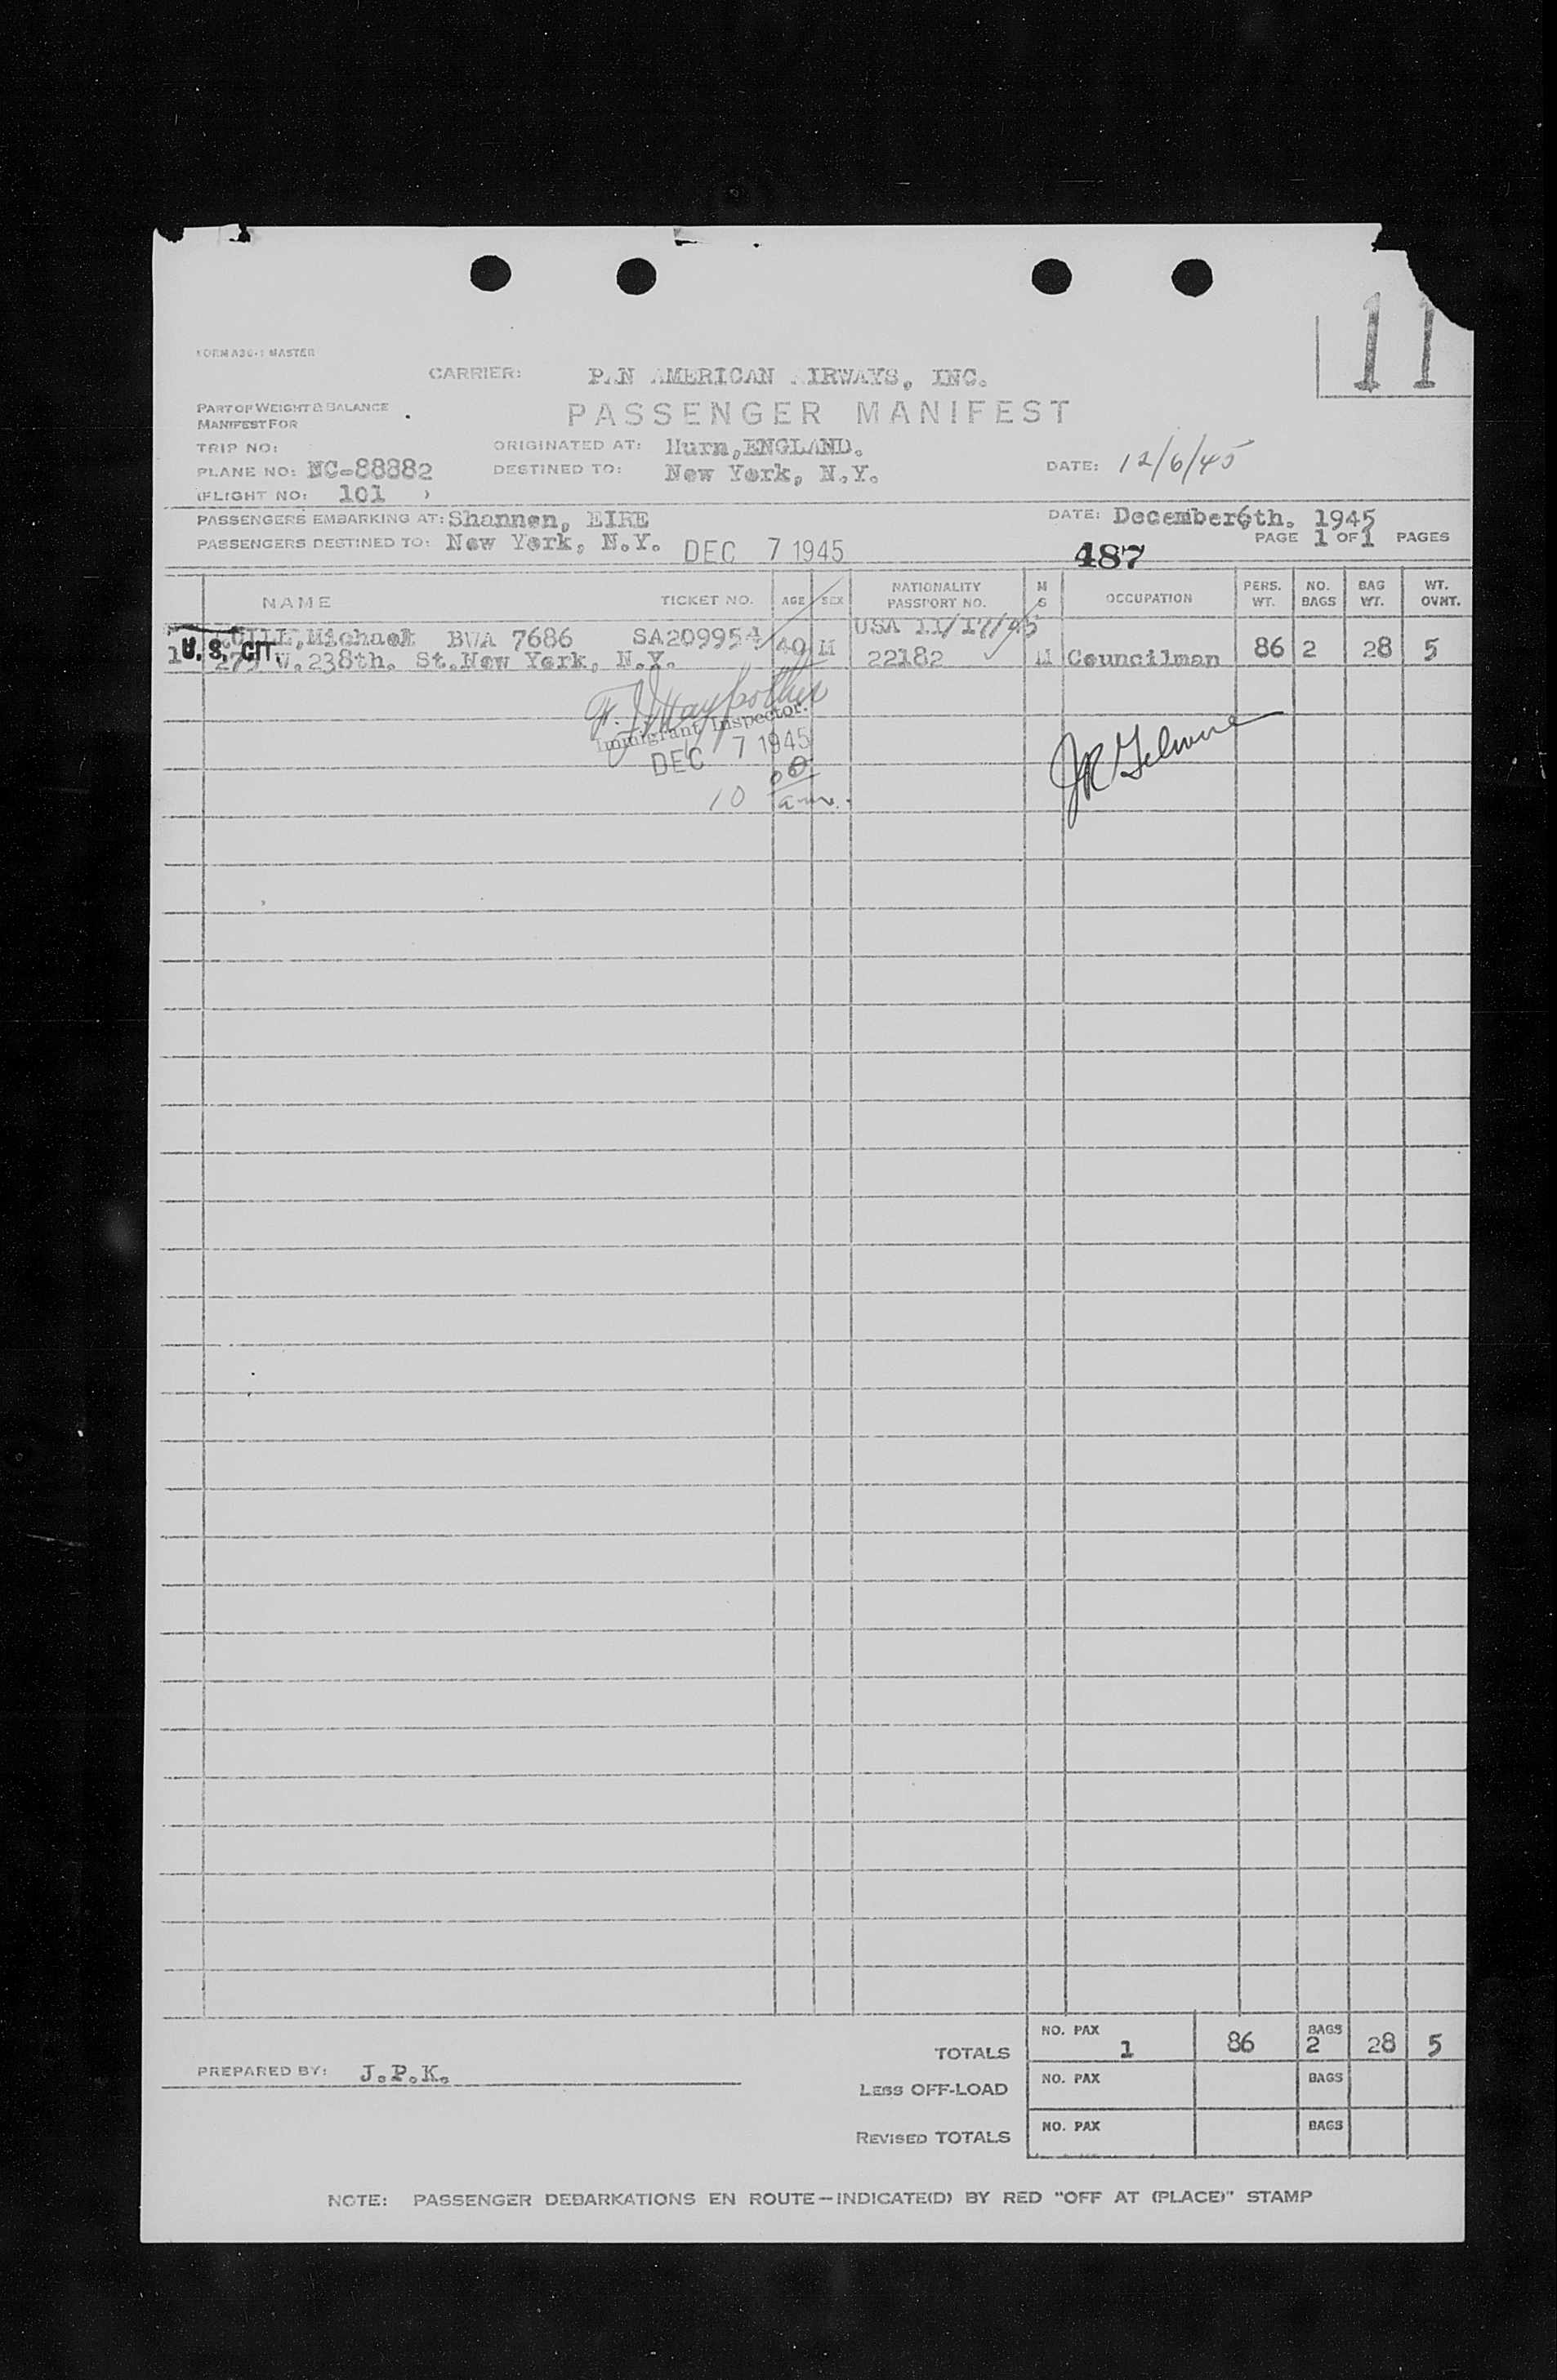 11
FORM A36-1 MASTER
CARRIER: PAN AMERICAN AIRWAYS, INC.
PART OF WEIGHT & BALANCE
MANIFEST FOR
PASSENGER MANIFEST
TRIP NO: ORIGINATED AT: Hurn, ENGLAND.
PLANE NO: NC-88882 DESTINED TO: New York, N.Y. DATE: 12/6/45
(FLIGHT NO: 101 )
PASSENGERS EMBARKING AT: Shannon, EIRE DATE: December 6th. 1945
PASSENGERS DESTINED TO: New York, N.Y. DEC 7 1945 487 PAGE 1 OF 1 PAGES
NAME TICKET NO. AGE SEX NATIONALITY PASSPORT NO. M S OCCUPATION PERS. WT. NO. BAGS BAG WT. WT. OVNT.
Michael BWA 7686 SA209954 40 M USA 11/17/45
1 U. S. CIT. W. 238th. St. New York, N.Y. 22182 M Councilman 86 2 28 5
Immigrant Inspector.
DEC 7 1945
10 00 a.m.
TOTALS NO. PAX 1 86 BAGS 2 28 5
PREPARED BY: J.P.K.
LESS OFF-LOAD NO. PAX BAGS
REVISED TOTALS NO. PAX BAGS
NOTE: PASSENGER DEBARKATIONS EN ROUTE—INDICATE(D) BY RED "OFF AT (PLACE)" STAMP